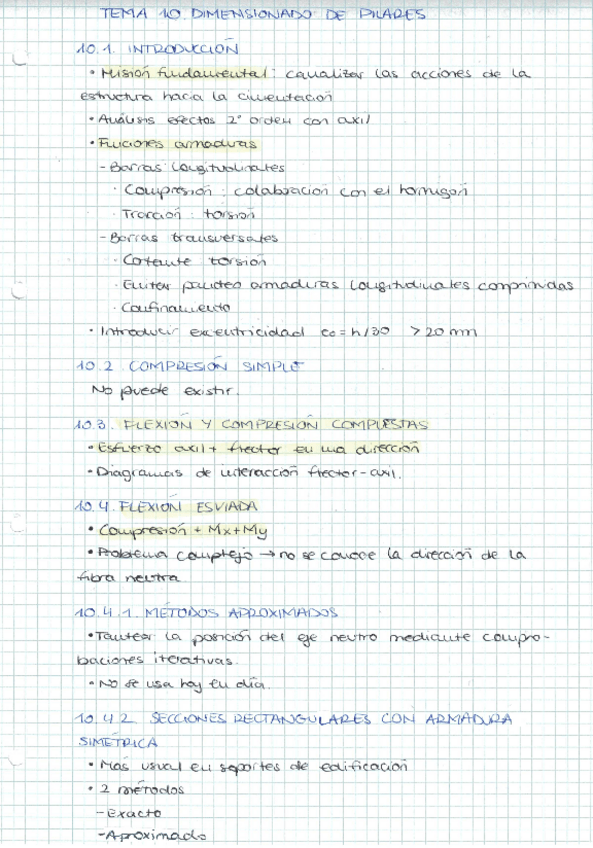 TEMA 10. DIMENSIONADO DE PILARES
10.1. INTRODUCCIÓN
• Misión fundamental: canalizar las acciones de la
estructura hacia la cimentación
• Análisis efectos 2º orden con axil
• Funciones armaduras
- Barras longitudinales
· Compresión: colaboración con el hormigón
· Tracción: torsión
- Barras transversales
· Cortante torsión
· Evitar pandeo armaduras longitudinales comprimidas
· Confinamiento
• Introducir excentricidad e0 = h/30 > 20 mm
10.2 COMPRESIÓN SIMPLE
No puede existir.
10.3. FLEXIÓN Y COMPRESIÓN COMPUESTAS
• Esfuerzo axil + flector en una dirección
• Diagramas de interacción flector-axil.
10.4. FLEXIÓN ESVIADA
• Compresión + Mx + My
• Problema complejo → no se conoce la dirección de la
fibra neutra
10.4.1. MÉTODOS APROXIMADOS
• Tantear la posición del eje neutro mediante compro-
baciones iterativas.
• No se usa hoy en día.
10.4.2. SECCIONES RECTANGULARES CON ARMADURA
SIMÉTRICA
• Más usual en soportes de edificación
• 2 métodos
- Exacto
- Aproximado